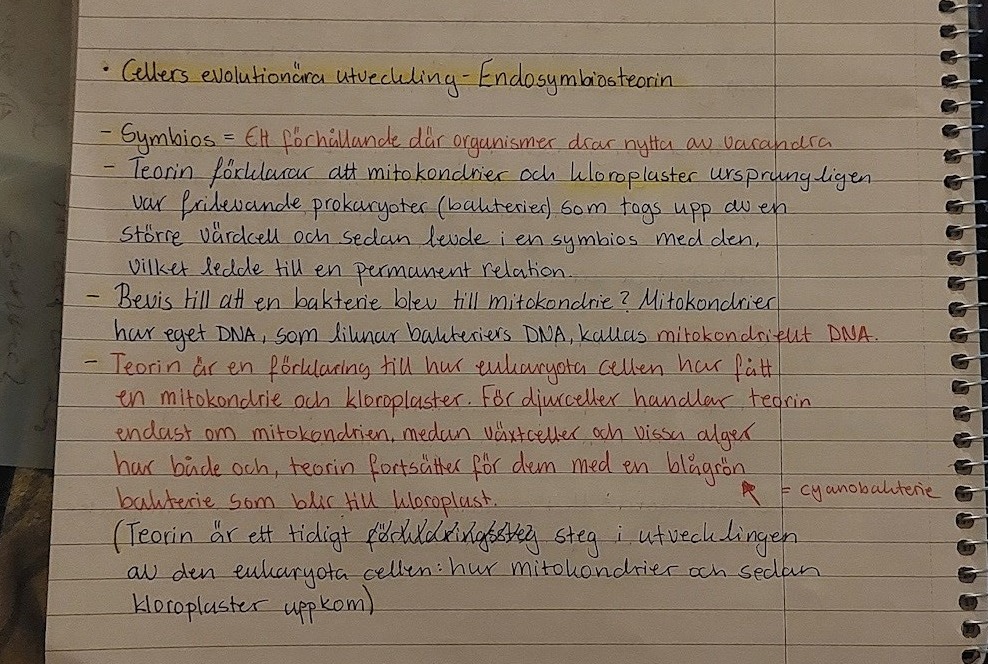 • Cellers evolutionära utveckling - Endosymbiosteorin
- Symbios = Ett förhållande där organismer drar nytta av varandra
- Teorin förklarar att mitokondrier och kloroplaster ursprungligen
var frilevande prokaryoter (bakterier) som togs upp av en
större värdcell och sedan levde i en symbios med den,
vilket ledde till en permanent relation.
- Bevis till att en bakterie blev till mitokondrie? Mitokondrier
har eget DNA, som liknar bakteriers DNA, kallas mitokondrielt DNA.
- Teorin är en förklaring till hur eukaryota cellen har fått
en mitokondrie och kloroplaster. För djurceller handlar teorin
endast om mitokondrien, medan växtceller och vissa alger
har både och, teorin fortsätter för dem med en blågrön
= cyanobakterie
bakterie som blir till kloroplast.
(Teorin är ett tidigt förklaringssteg steg i utvecklingen
av den eukaryota cellen: hur mitokondrier och sedan
kloroplaster uppkom)